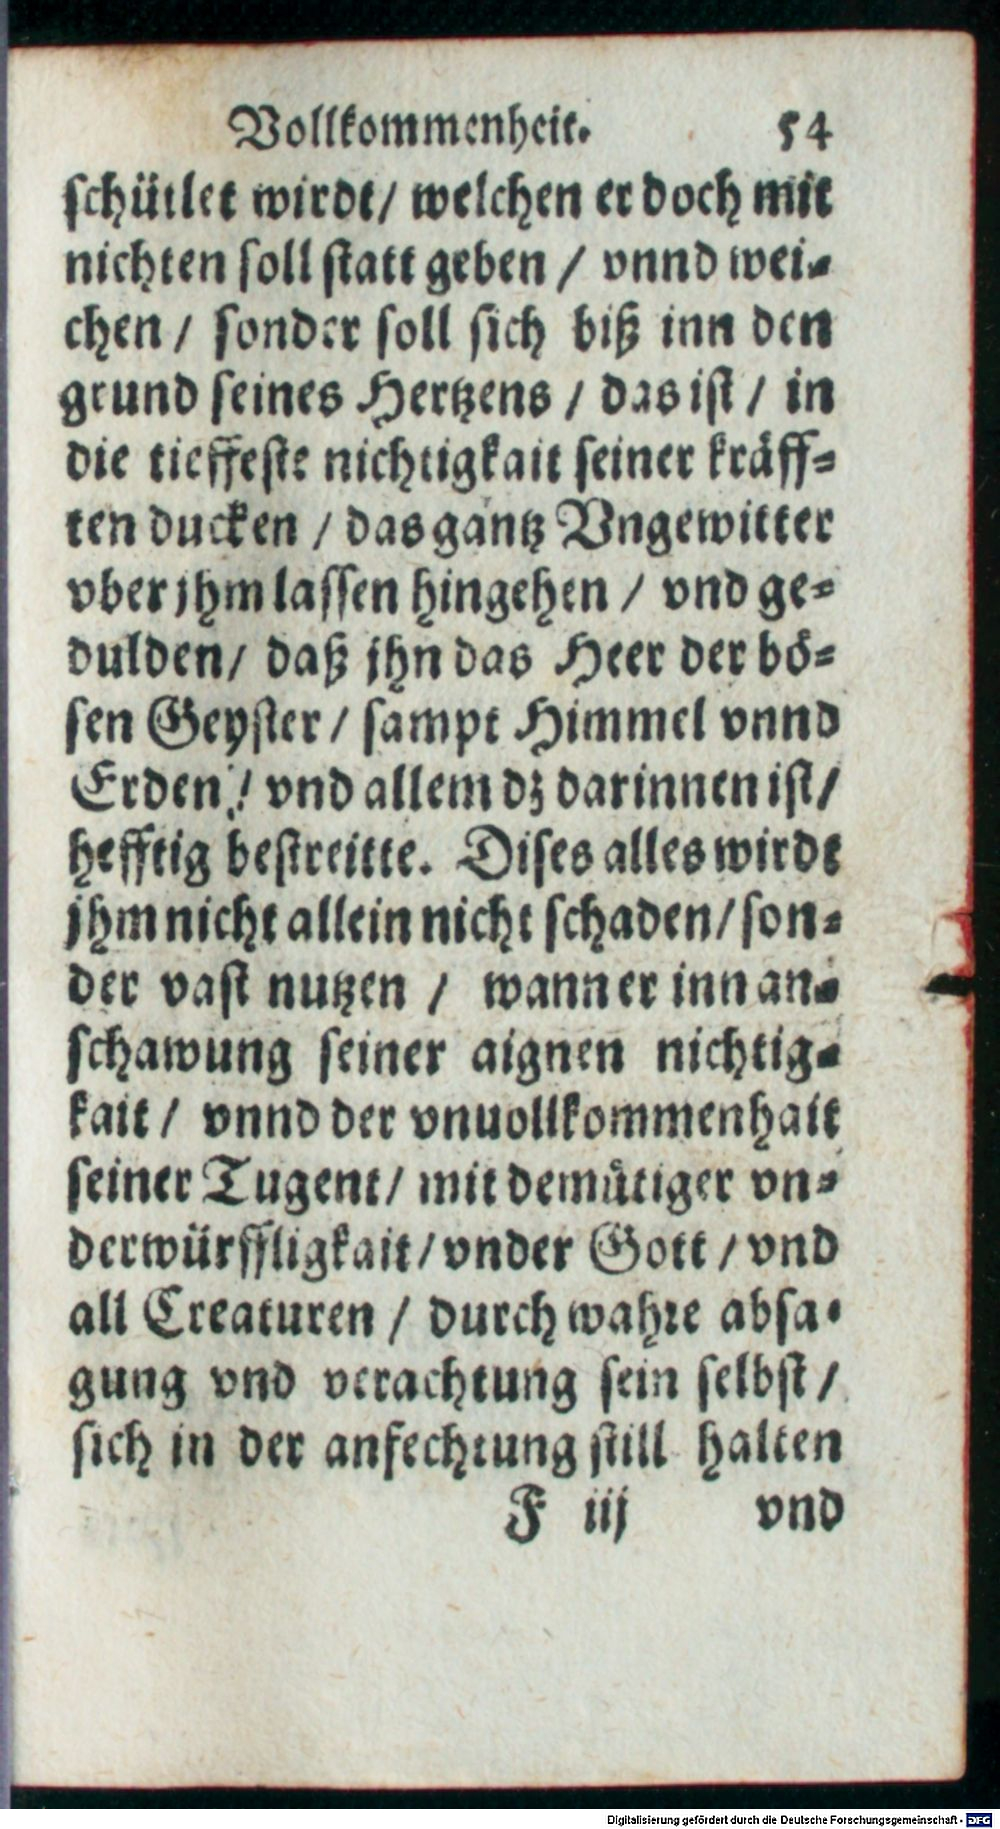 Vollkommenheit. 54
schütlet wirdt/ welchen er doch mit
nichten soll statt geben / vnnd wei-
chen / sonder soll sich biß inn den
grund seines Hertzens / das ist / in
die tieffeste nichtigkait seiner kräff-
ten ducken / das gantz Vngewitter
vber jhm lassen hingehen / vnd ge-
dulden/ daß jhn das Heer der bö-
sen Geyster / sampt Himmel vnnd
Erden / vnd allem dz darinnen ist/
hefftig bestreitte. Dises alles wirdt
jhm nicht allein nicht schaden/ son-
der vast nutzen / wann er inn an-
schawung seiner aignen nichtig-
kait / vnnd der vnuollkommenhait
seiner Tugent/ mit demütiger vn-
derwürffligkait/ vnder Gott / vnd
all Creaturen / durch wahre absa-
gung vnd verachtung sein selbst /
sich in der anfechtung still halten
F iij vnd
Digitalisierung gefördert durch die Deutsche Forschungsgemeinschaft - DFG